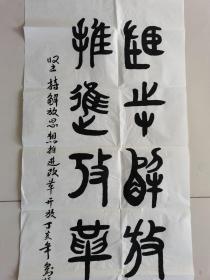 進步解放
推進改革
坚持解放思想推进改革开放丁亥年